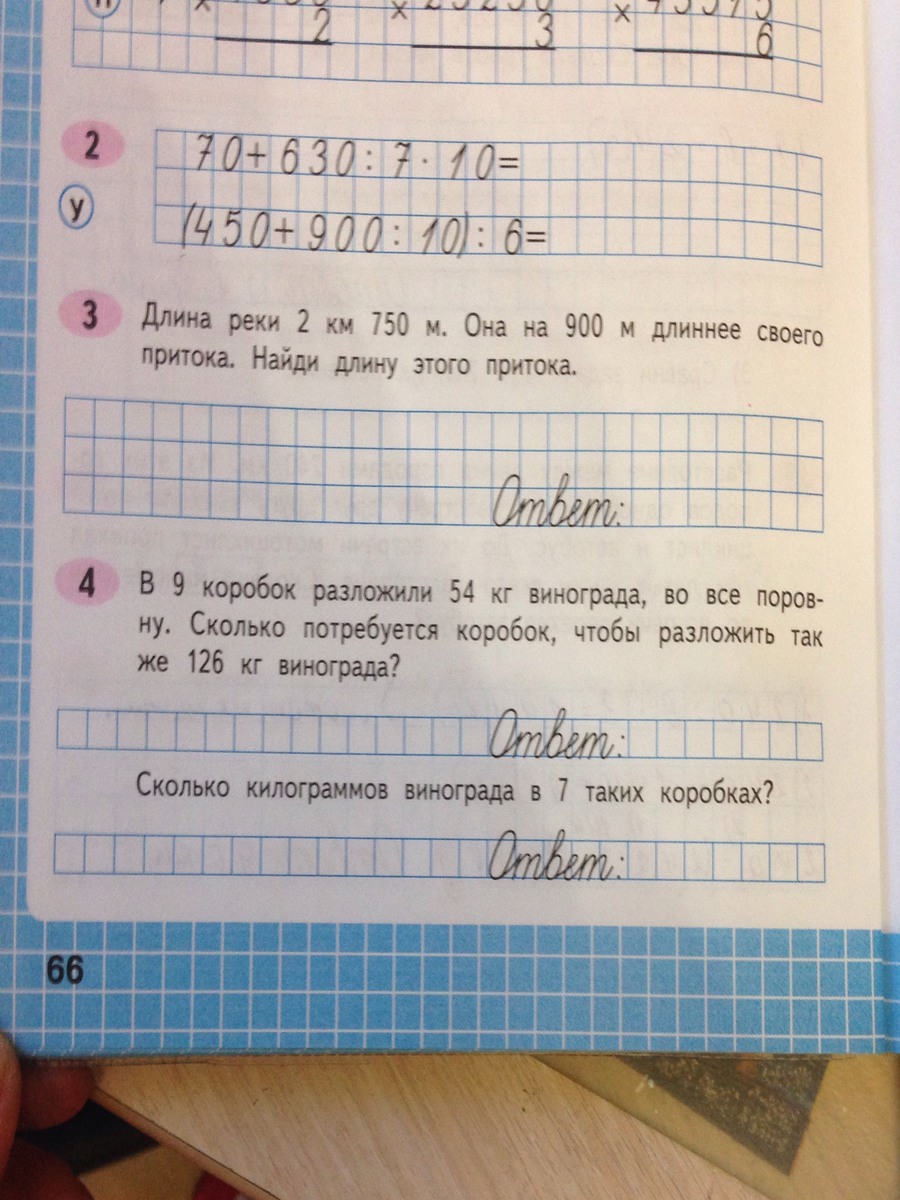 × 2 × 3 × 6
2
70+630:7·10=
У
(450+900:10):6=
3
Длина реки 2 км 750 м. Она на 900 м длиннее своего
притока. Найди длину этого притока.
Ответ:
4
В 9 коробок разложили 54 кг винограда, во все поров-
ну. Сколько потребуется коробок, чтобы разложить так
же 126 кг винограда?
Ответ:
Сколько килограммов винограда в 7 таких коробках?
Ответ:
66